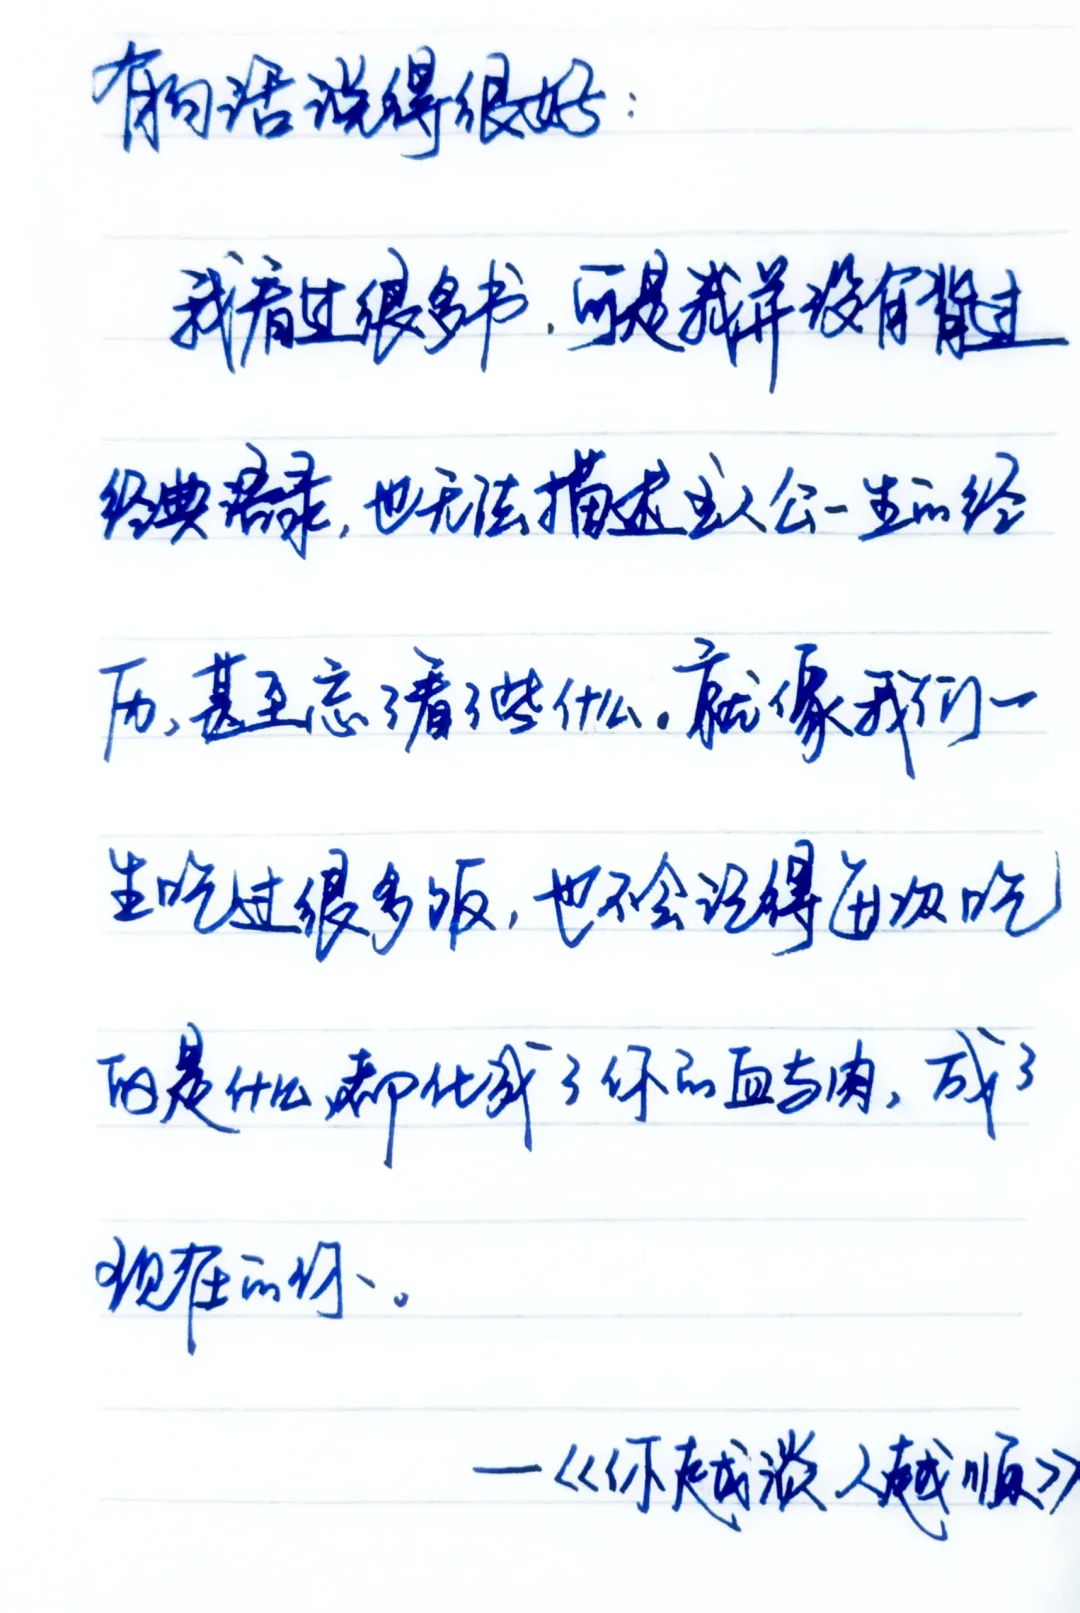 有句话说得很好:
我看过很多书,可是我并没有背过
经典语录,也无法描述主人公一生的经
历、甚至忘了看了些什么.就像我们一
生吃过很多饭,也不会记得每次吃
的是什么,都化成了你的血与肉,成了
现在的你、。
—《你越淡人越顺》